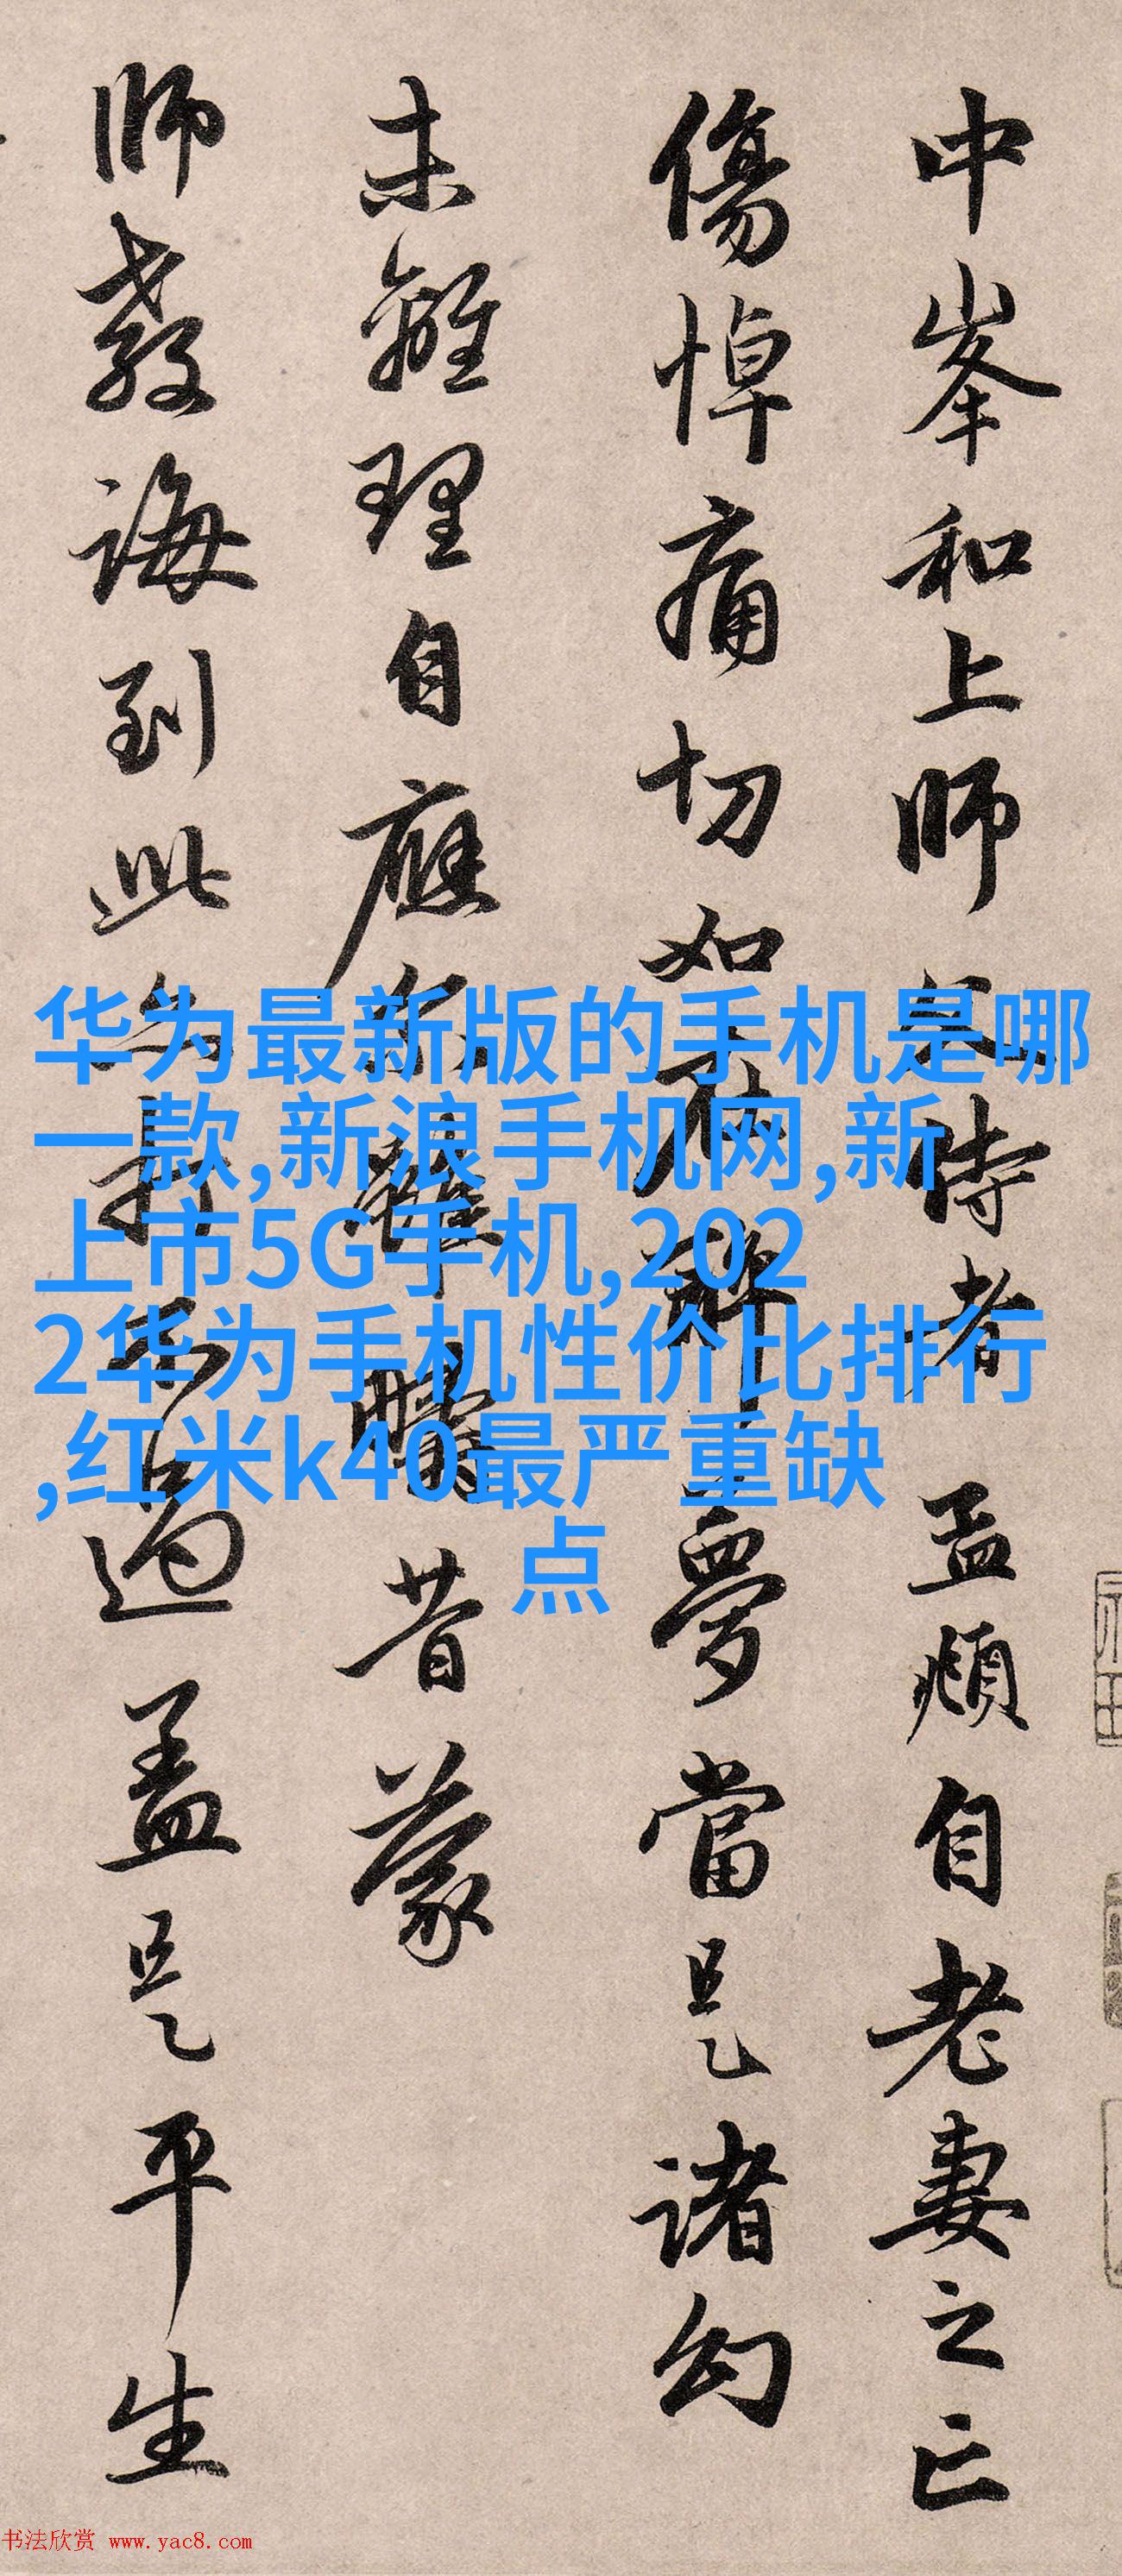 中峯和上師父侍者 孟頫自老妻之亡
傷悼痛切如在醉夢當是諸幻
未離理自應尔雖疇昔蒙
師教誨到此亦打不過蓋是平生
华为最新版的手机是哪
一款,新浪手机网,新
上市5G手机,202
2华为手机性价比排行
,红米k40最严重缺
点
书法欣赏 www.yac8.com